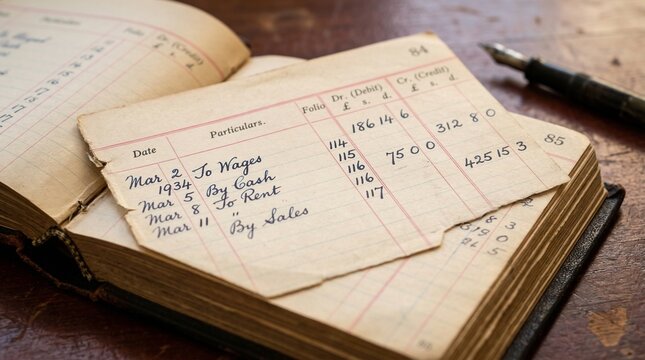 Particulars
Folio
Dr. (Credit)
84
Dr. (Debit) Cr. (Credit)
Date Particulars. Folio £ s. d. £ s. d.
Mar 2 To Wages 114 186 14 6
1934 115 312 8 0
Mar 5 By Cash 116 75 0 0
Mar 8 To Rent 116 425 15 3
Mar 11 " By Sales 117
85